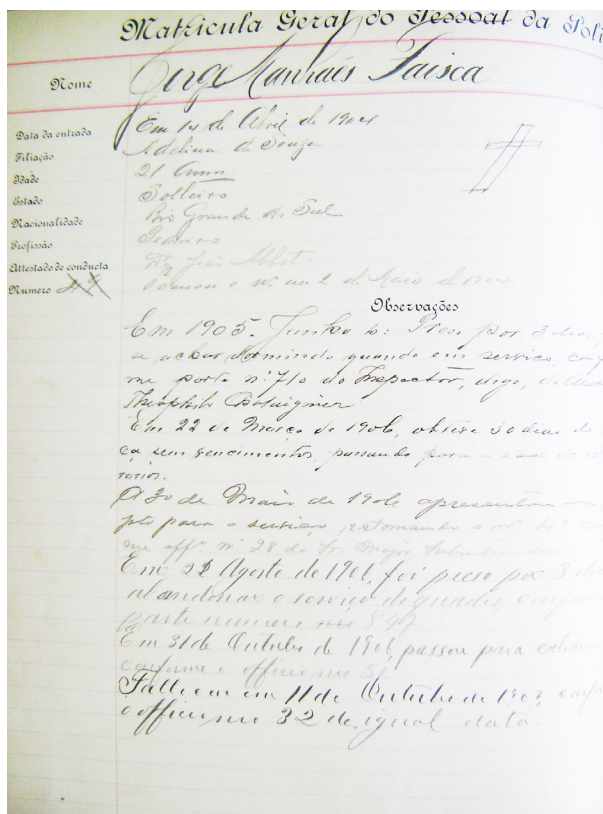 Matricula Geral do Pessoal da Poli
Nome Jorge Manhães Faisca
Data da entrada Em 14 de Abril de 1904
Filiação Adelina de Souza
Idade 21 Annos
Estado Solteiro
Nacionalidade Rio Grande do Sul
Profissão Pedreiro
Attestado de conducta João
Numero 49 Tomou o nº em 2 de Maio de 1904
Observações
Em 1905. Junho 6: Preso por 3 dias,
se achar dormindo quando em serviço, conf
me parte nº 710 do Inspector, digo, do
Theophilo
Em 22 de Março de 1906, obteve 30 dias de
ça sem vencimentos, passando para
rarios.
A 30 de Maio de 1906 apresentou
pto para o serviço, retornando o nº
me offº nº 28 do Sr. Major
Em 22 Agosto de 1906, foi preso por 3 dias
abandonar o serviço de quadro, conform
parte numero
Em 31 de Outubro de 1906, passou para
conforme o officio nro 51
Falleceu em 11 de Outubro de 1907, conf
o officio nro 32 de igual data.